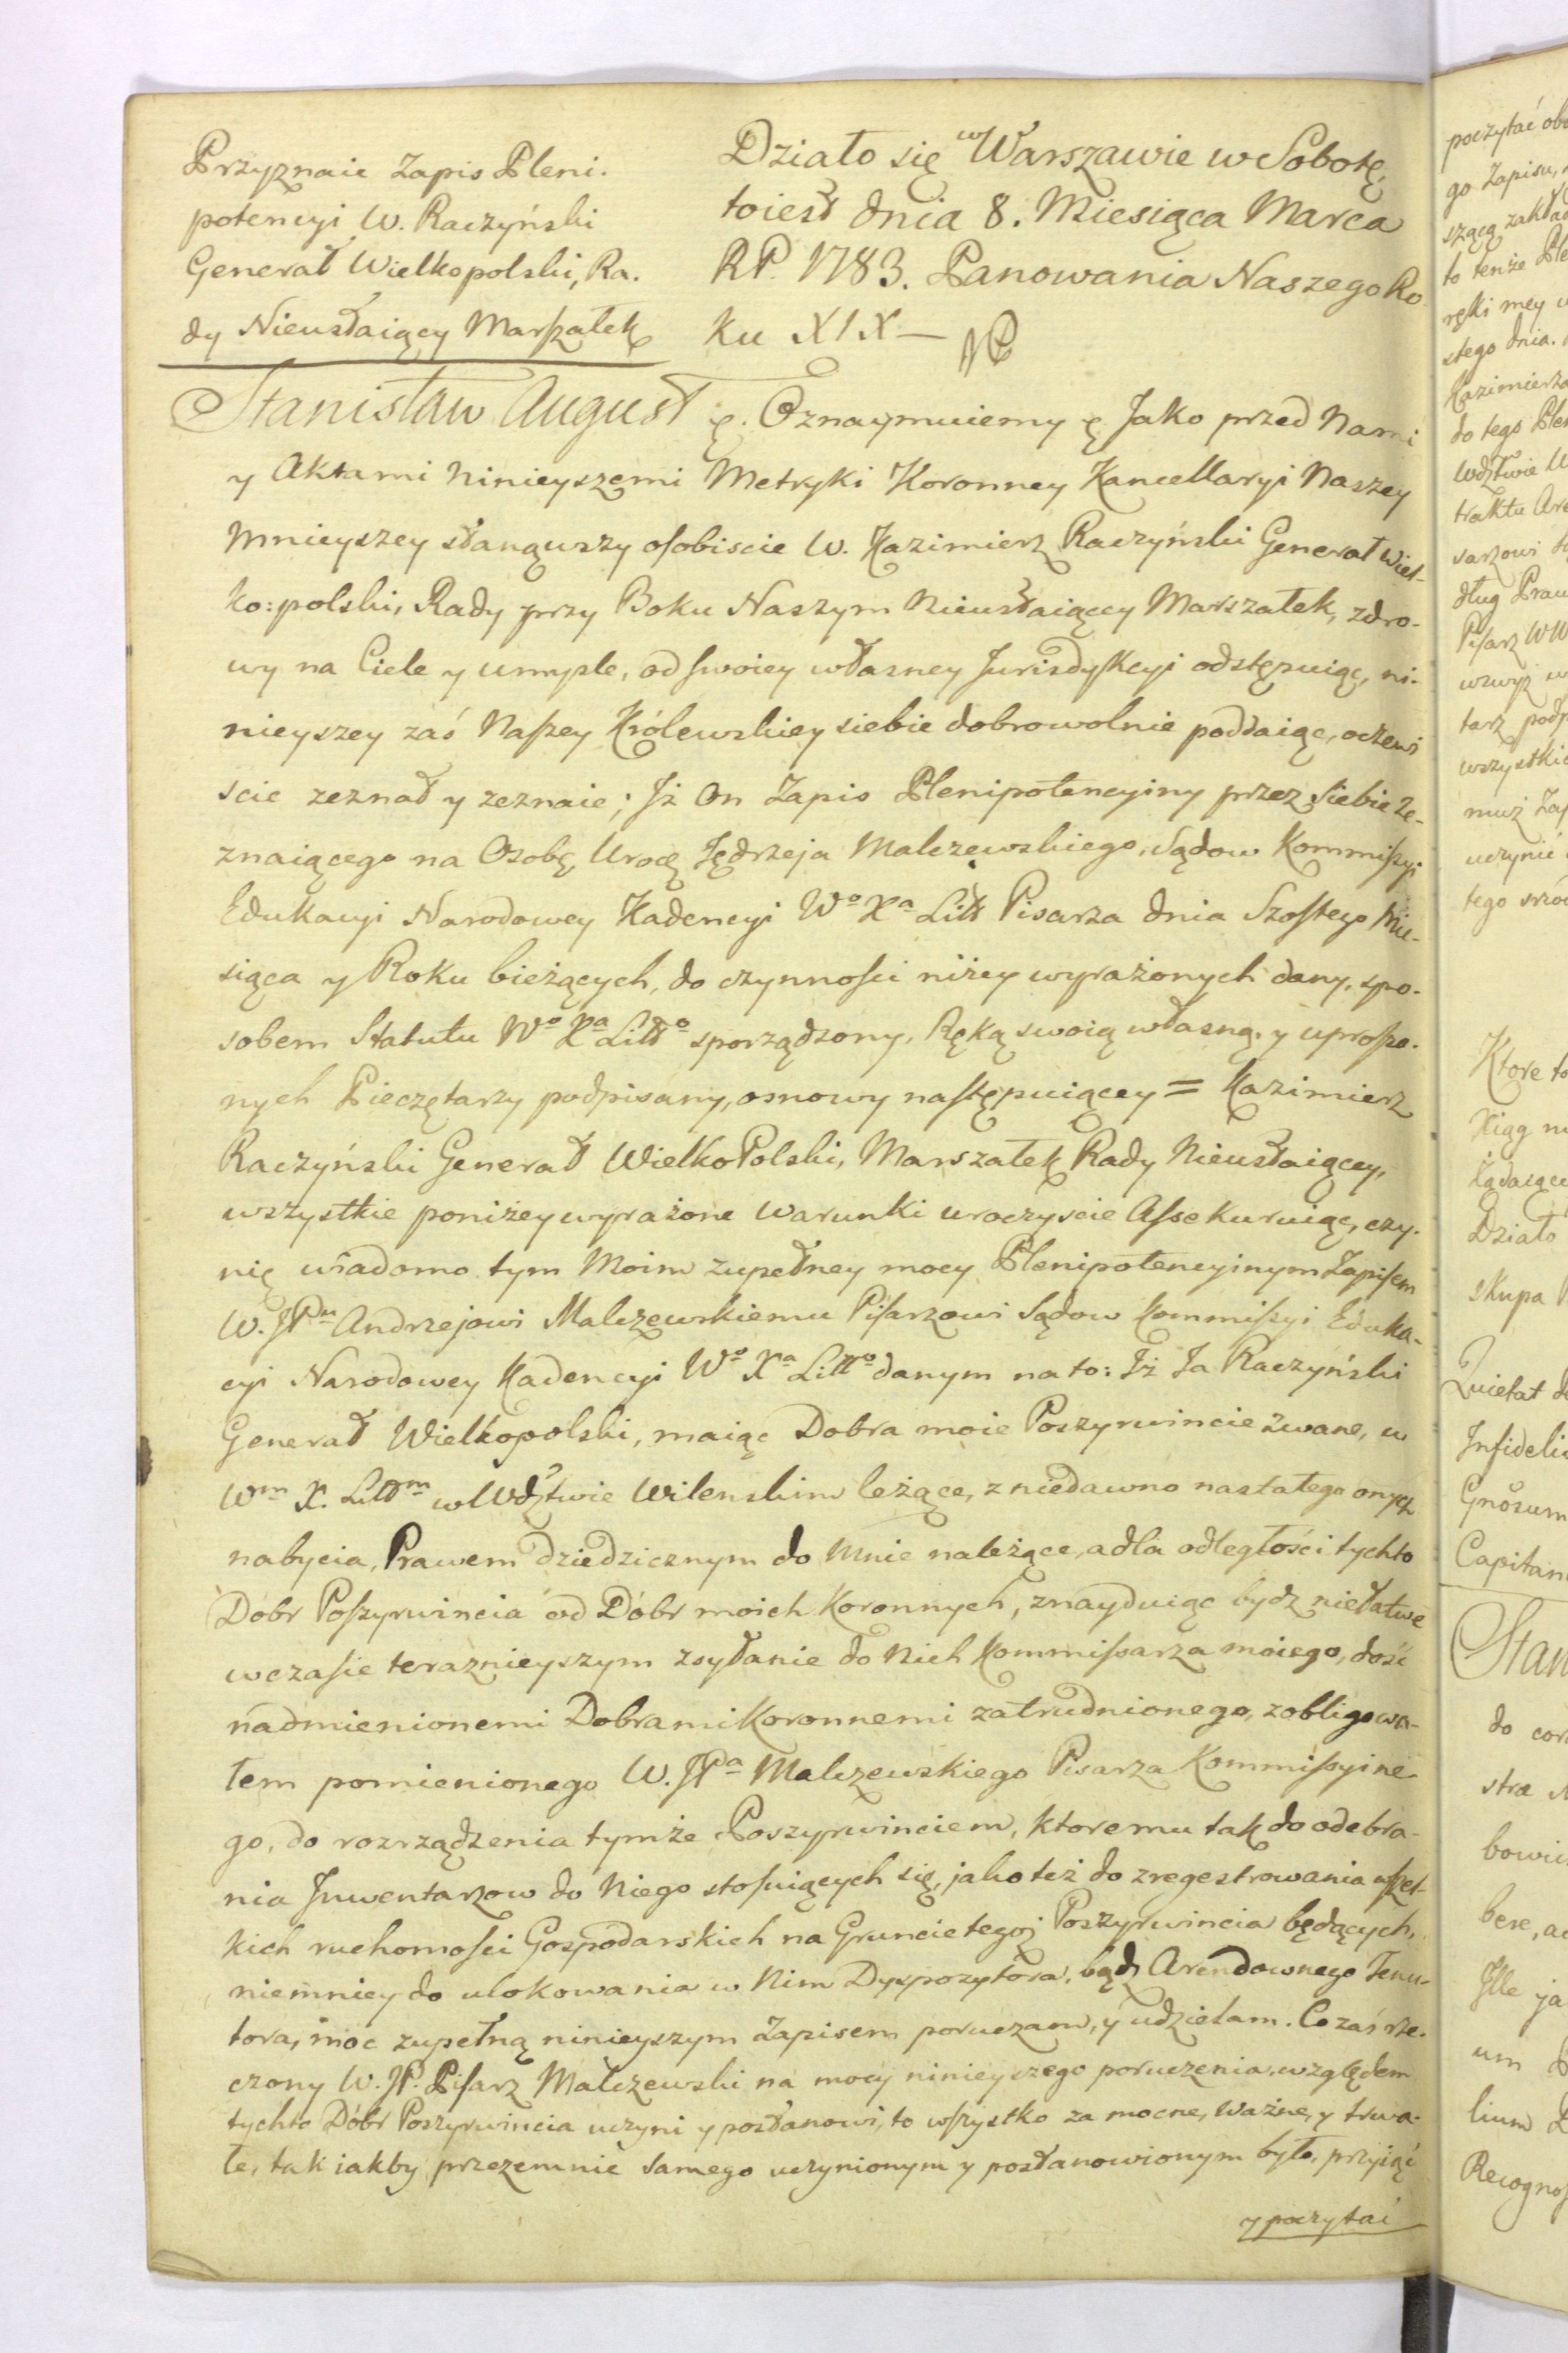 Przyznaie Zapis Pleni.
potencyi W. Raczyński
Generał Wielkopolski, Ra.
dy Nieustaiący Marszałek
Działo się w Warszawie w Sobotę,
toiest dnia 8. Miesiąca Marca
RP. 1783. Panowania Naszego Ro
ku XIX —
Stanisław August &. Oznaymuiemy & Jako przed Nami
y Aktami Ninieyszemi Metryki Koronney Kancellaryi Naszey
Mnieyszey stanąwszy osobiscie W. Kazimierz Raczyński Generał Wiel-
ko: polski, Rady przy Boku Naszym Nieustaiącey Marszałek, zdro-
wy na Ciele y umysle, od swoiey własney Jurisdykcyi odstępuiąc, ni-
nieyszey zaś Naszey Królewskiey siebie dobrowolnie poddaiąc, oczewi
scie zeznał y zeznaie; Jż On Zapis Plenipotencyiny przez Siebie Ze-
znaiącego na Osobę Uroę Jędrzeja Malczewskiego, Sądow Kommissyi
Edukacyi Narodowey Kadencyi Wo Xa Litt Pisarza dnia Szostego Mie-
siąca y Roku bieżących, do czynnosci niżey wyrażonych dany, spo-
sobem Statutu Wo Xa Litto sporządzony, Ręką swoią własną, y uproszo-
nych Pieczętarzy podpisany, osnowy następuiącey = Kazimierz
Raczyński Generał WielkoPolski, Marszałek Rady Nieustaiącey,
wszystkie poniżey wyrażone Warunki uroczyscie Assekuruiąc, czy-
nię wiadomo tym Moim zupełney mocy Plenipotencyinym Zapisem
W. JPu Andrzejowi Malczewskiemu Pisarzowi Sądow Kommissyi Eduka-
cyi Narodowey Kadencyi Wo Xa Litto danym na to: Iż Ja Raczyński
Generał Wielkopolski, maiąc Dobra moie Poszyrwincie zwane, w
Wm X. Littm w Wdztwie Wilenskim leżące, z niedawno nastałego onych
nabycia, Prawem dziedzicznym do Mnie należące, a dla odległości tychto
Dobr Poszyrwincia od Dóbr moich Koronnych, znayduiąc bydz niełatwe
w czasie teraznieyszym zsyłanie do Nich Kommissarza moiego, dość
nadmienionemi Dobrami Koronnemi zatrudnionego, zobligowa-
łem pomienionego W. JPa Malczewskiego Pisarza Kommissyine-
go, do rozrządzenia tymże Poszyrwinciem, ktoremu tak do odebra-
nia Jnwentarzow do Niego stosuiących się, jako też do zregestrowania wszel-
kich ruchomości Gospodarskich na Gruncie tegoż Poszyrwincia będących,
niemniey do ulokowania w Nim Dyspozytora, bądz Arendownego Tenu-
tora, moc zupełną ninieyszym Zapisem poruczam, y udzielam. Co zaś rze-
czony W. JP. Pisarz Malczewski na mocy ninieyszego poruczenia, względem
tychto Dóbr Poszyrwincia uczyni y postanowi, to wszystko za mocne, Ważne, y trwa-
łe, tak iakby przezemnie samego uczynionym y postanowionym było, przyiąć
y poczytać
poczytać
go Zapisu,
to tenże
ręki mey
stego dnia.
Kazimierz
do tego
traktu
sarzowi
dług
Pisarz WW
wszystkie
uczynić
tego
Ktore to
Xiąg
Działo
skupa
Infideli
Capitan
Stan
do
bere,
Jlle ja
um
lium